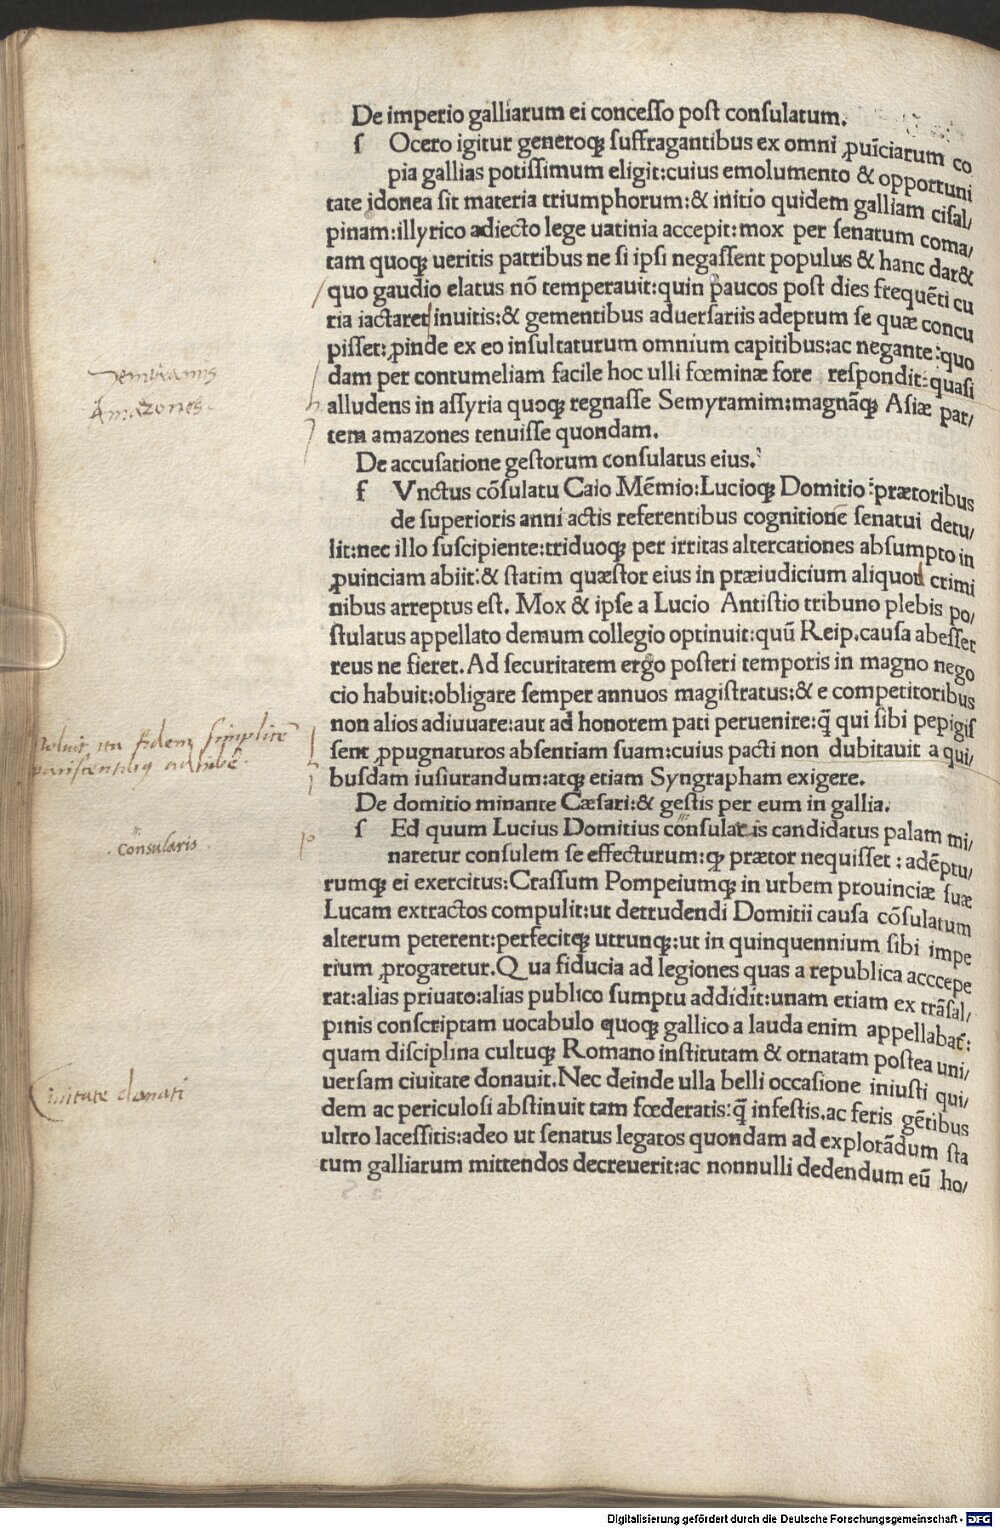 De imperio galliarum ei concesso post consulatum.
ſ Ocero igitur generoqꝫ ſuffragantibus ex omni ꝓuīciarum co
pia gallias potiſſimum eligit:cuius emolumento & opportuni
tate idonea ſit materia triumphorum:& initio quidem galliam ciſal/
pinam:illyrico adiecto lege uatinia accepit:mox per ſenatum coma/
tam quoqꝫ ueritis patribus ne ſi ipſi negaſſent populus & hanc dar&
quo gaudio elatus nō temperauit:quin paucos post dies frequēti cu
ria iactaret inuitis:& gementibus aduerſariis adeptum ſe quæ concu
piſſet:ꝓinde ex eo inſultaturum omnium capitibus:ac negante:quo
dam per contumeliam facile hoc ulli fœminæ fore reſpondit:quaſi
alludens in aſſyria quoqꝫ regnaſſe Semyramim:magnāqꝫ Aſiæ par/
tem amazones tenuiſſe quondam.
Semiramis
Amazones
De accuſatione geſtorum conſulatus eius.
f Vnctus cōſulatu Caio Mēmio:Lucioqꝫ Domitio:prætoribus
de ſuperioris anni actis referentibus cognitionē ſenatui detu/
lit:nec illo ſuſcipiente:triduoqꝫ per irritas altercationes abſumpto in
ꝓuinciam abiit:& ſtatim quæſtor eius in præiudicium aliquod crimi
nibus arreptus eſt. Mox & ipſe a Lucio Antiſtio tribuno plebis po/
ſtulatus appellato demum collegio optinuit:quū Reip.cauſa abeſſet
reus ne fieret.Ad ſecuritatem ergo poſteri temporis in magno nego
cio habuit:obligare ſemper annuos magiſtratus:& e competitoribus
non alios adiuuare:aut ad honorem pati peruenire:q̄ qui ſibi pepigiſ
ſent ꝓpugnaturos abſentiam ſuam:cuius pacti non dubitauit a qui/
buſdam iuſiurandum:atqꝫ etiam Syngrapham exigere.
De domitio minante Cæſari:& geſtis per eum in gallia.
ſ Ed quum Lucius Domitius conſularis candidatus palam mi/
naretur conſulem ſe effecturum:ꝙ prætor nequiſſet:adēptu/
rumqꝫ ei exercitus:Craſſum Pompeiumqꝫ in urbem prouinciæ ſuæ
Lucam extractos compulit:ut detrudendi Domitii cauſa cōſulatum
alterum peterent:perfecitqꝫ utrunqꝫ:ut in quinquennium ſibi impe
rium ꝓrogaretur.Qua fiducia ad legiones quas a republica acccepe
rat:alias priuato:alias publico ſumptu addidit:unam etiam ex trāſal/
pinis conſcriptam uocabulo quoqꝫ gallico alauda enim appellabat̄:
quam diſciplina cultuqꝫ Romano inſtitutam & ornatam poſtea uni/
uerſam ciuitate donauit.Nec deinde ulla belli occaſione iniuſti qui/
dem ac periculoſi abſtinuit tam fœderatis:q̄ infeſtis.ac feris gētibus
ultro laceſſitis:adeo ut ſenatus legatos quondam ad explorādum ſta
tum galliarum mittendos decreuerit:ac nonnulli dedendum eū ho/
consularis
ciuitate donati
Digitalisierung gefördert durch die Deutsche Forschungsgemeinschaft - DFG